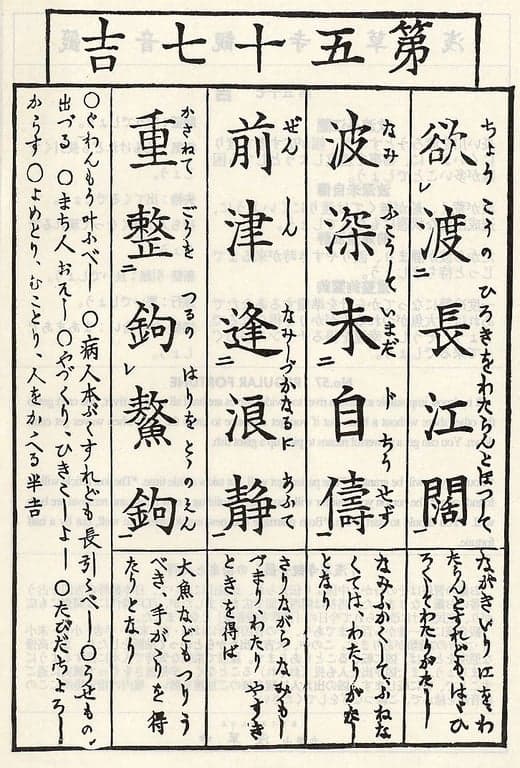 第五十七吉
ちやうこうの ひろきをわたらんとほつして
欲レ渡二長江闊一
ながきいり江をわ
たらんとすれども はゞひ
ろくてわたりがたし
なみ ふかうして いまだ ト ちうせず
波深未二自儔一
なみふかくしてふねな
くては、わたりがたし
となり
ぜん しん なみしづかなるに あふて
前津逢二浪静一
さりながら なみもし
づまり、わたりやすき
ときを得ば
かさねて ごうを つるの はりをとゝのえん
重整二鉤レ鰲鉤一
大魚などもつりう
べき、手がゝりを得
たりとなり
〇ぐわんもう叶ふべし 〇病人本ぶくすれども長引くべし 〇うせもの、
出づる 〇まち人おそし 〇やづくり、ひきこしよし 〇たびだちよろし
からず 〇よめとり、むことり、人をかゝへる半吉